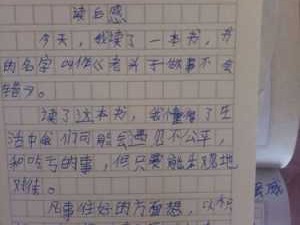 读后感
今天，我读了一本书，书
的名字叫作《老头子做事不会
错》。
读了这本书，我懂得了生
活中我们可能会遇见不公平，
和吃亏的事，但只要能乐观地
对待。
凡事往好的方面想，以积